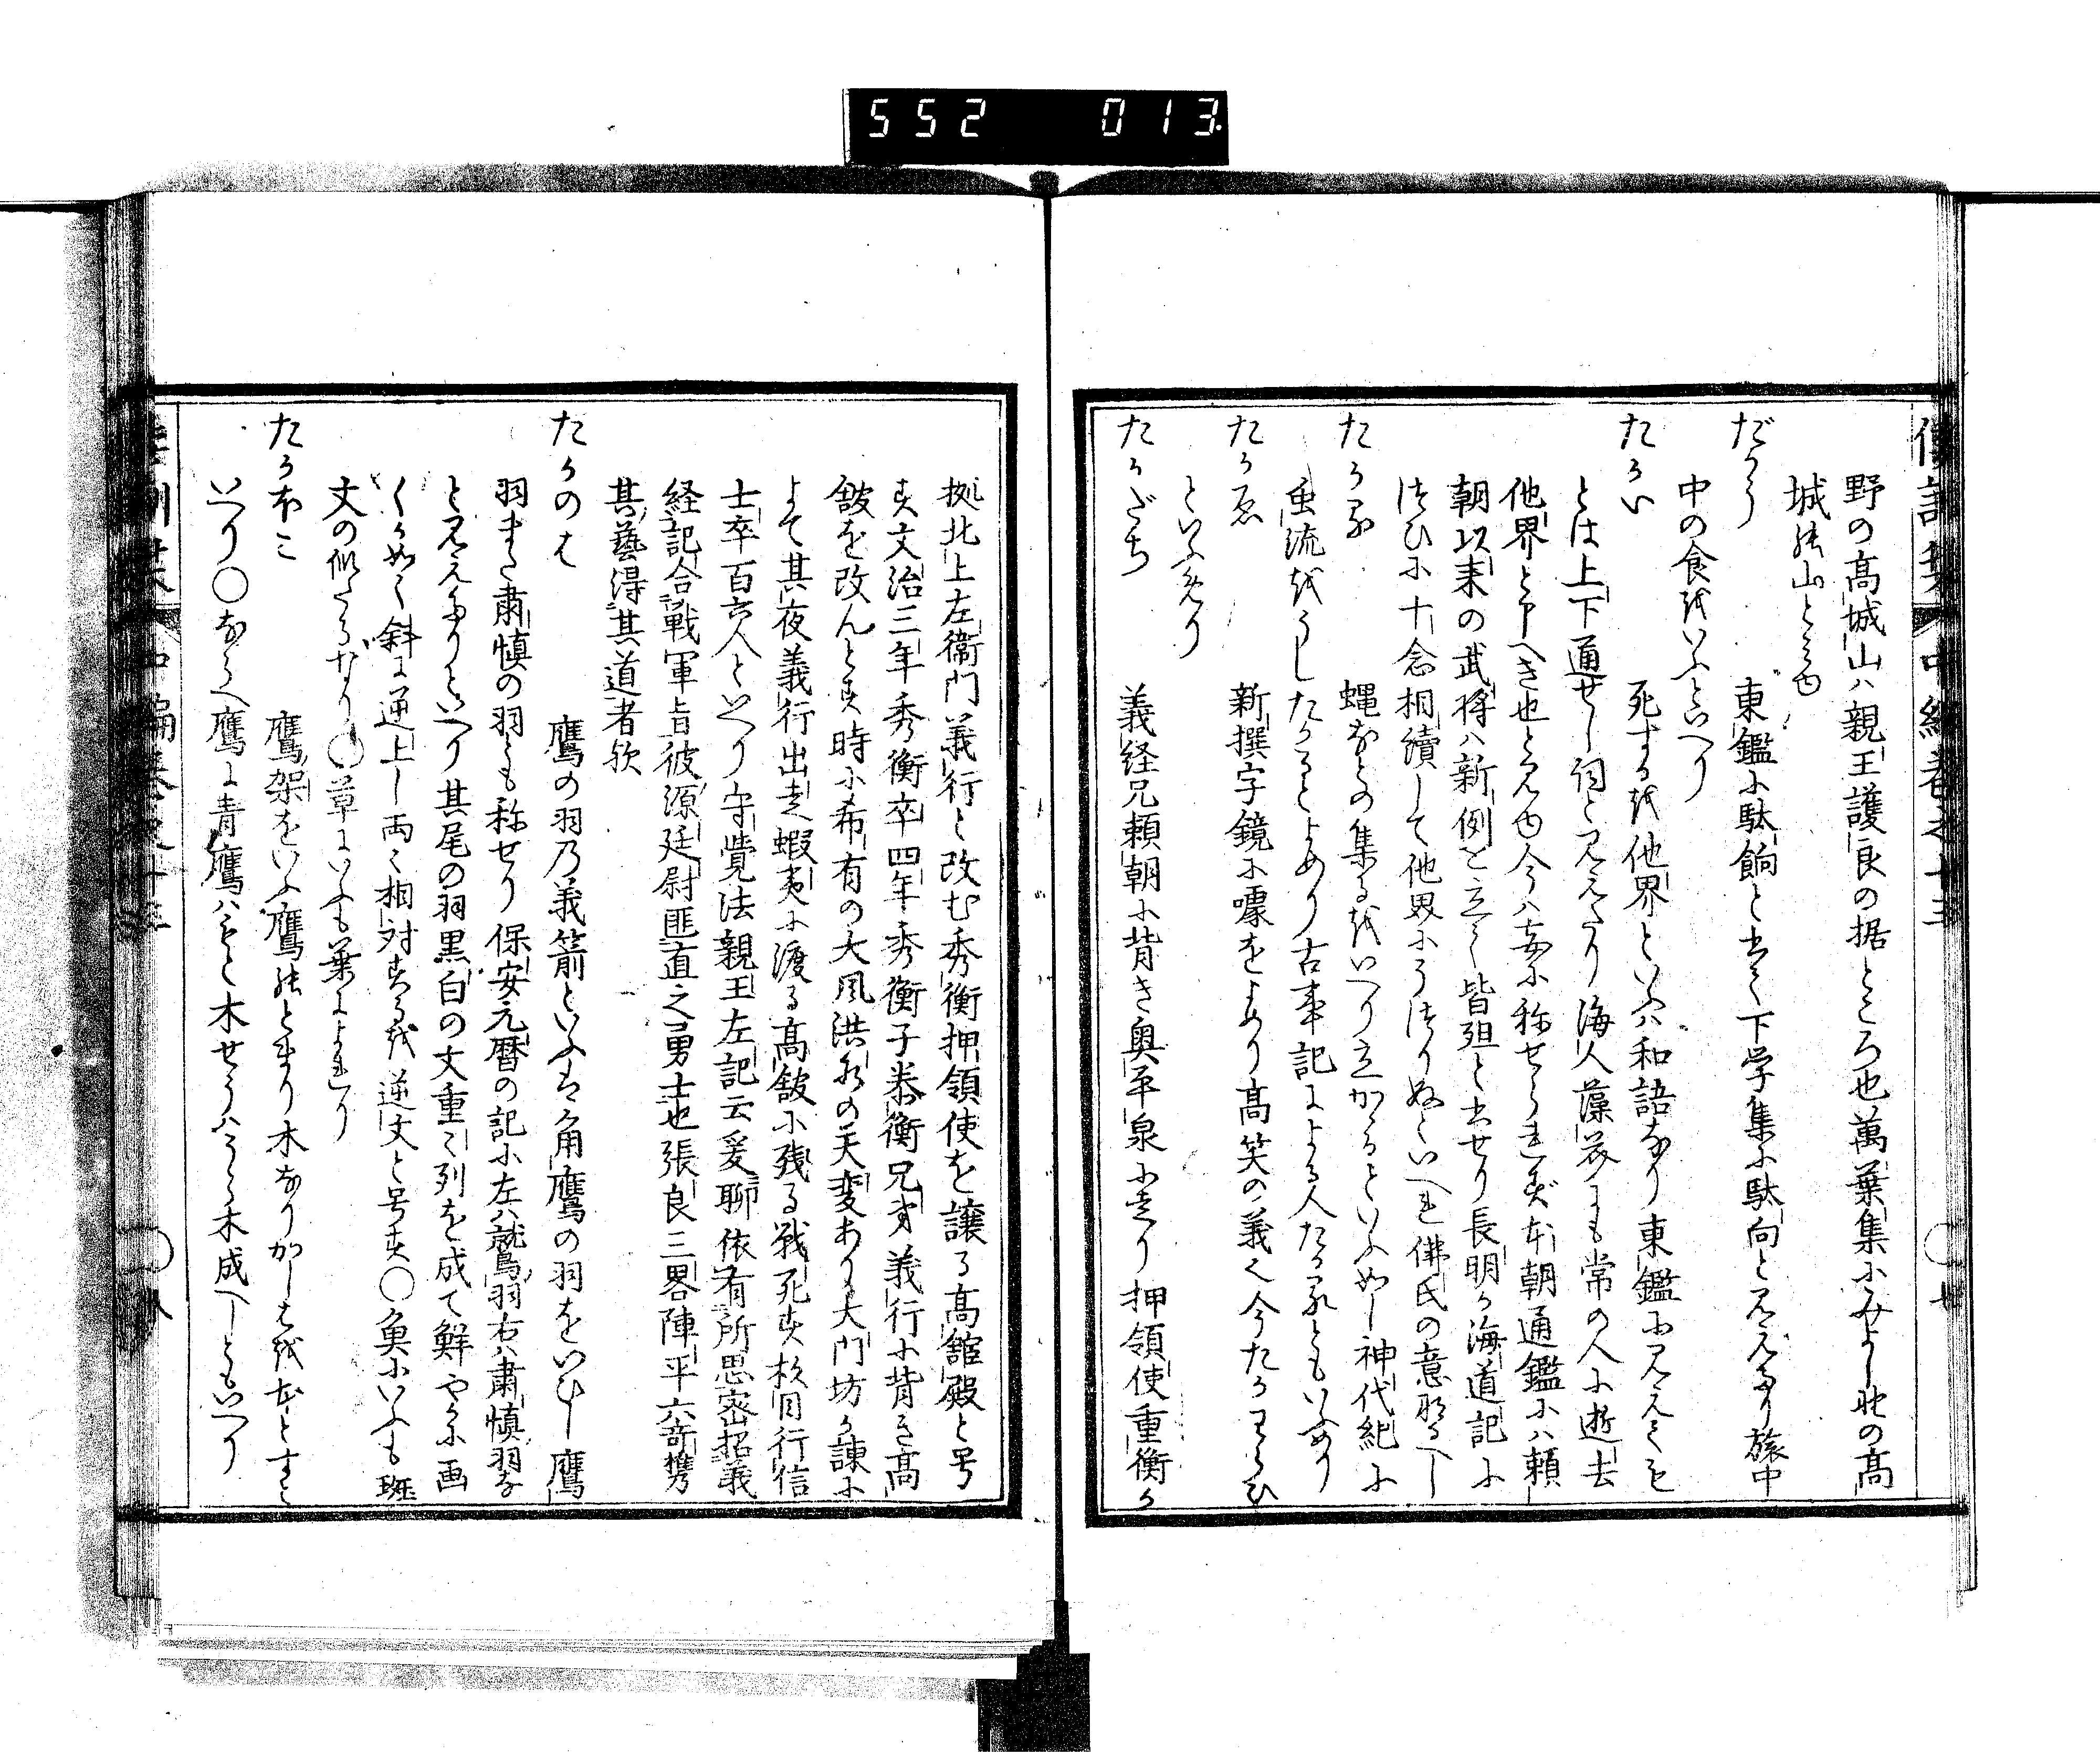 552 013
野の高城山ハ親王護良の据ところ也萬葉集にみよし野の高
城の山とみゆ
だかう 東鑑に駄餉と書く下学集に駄向と見えたり旅中
中の食をいふといへり
たかい 死するを他界といふハ和語なり東鑑に見えこも
とは上下通せし詞と見えたり海人藻芥にも常の人に逝去
他界と申へき也と見ゆ今ハ妄に称せられず本朝通鑑にハ頼
朝以来の武将ハ新例を立て皆殂と書せり長明か海道記に
つひに十念相續して他界にうつりぬといへるも佛氏の意なるへし
たかる 蝿なとの集るをいへり立かゝるといふ如し神代紀に
虫流をうしたかるとよめり古事記による人たかれともいへり
たかゑ 新撰字鏡に噱をよめり高笑の義也今たかわらひ
といふめり
たかだち 義経兄頼朝に背き奥平泉に走り押領使重衡か
拠北上左衛門義行と改む秀衡押領使を譲る高舘殿と号
す文治三年秀衡卒四年秀衡子泰衡兄弟義行に背き高
舘を改んとす時に希有の大風洪水の天変あり大門坊か諌に
よて其夜義行出走蝦夷に渡る高舘に残る戦死す杉目行信
士卒百六人といへり守覚法親王左記云爰聊依有所思密招義
経記合戦軍旨彼源廷尉匪直之勇士也張良三畧陣平六奇携
其藝得其道者欤
たかのは 鷹の羽乃義箭といふは角鷹の羽をいひし鷹
羽また肅慎の羽とも称せり保安元暦の記に左ハ鷲羽右ハ肅慎羽な
と見えたりといへり其尾の羽黒白の文重々列を成て鮮やかに画
くか如く斜に逆上し両々相対するを逆文と号す〇魚にいふも斑
文の似たるなり〇草にいふも葉によれり
たかほこ 鷹架をいふ鷹のとまり木なりかしはを本とすと
いへり〇なら 鷹に青鷹ハもと木せうハうら木成へしともいへり